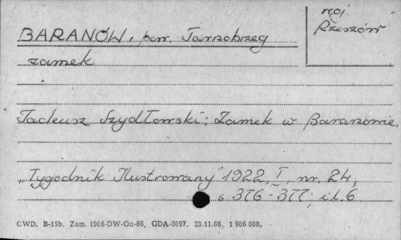 woj.
Rzeszów
BARANÓW, pow. Tarnobrzeg
zamek
Tadeusz Szydłowski: Zamek w Baranowie.
„Tygodnik Ilustrowany" 1922, I, nr. 24,
s 376-377; il. 6
CWD. B-15b. Zam. 1066-DW-On-66, GDA-3087. 23.11.66. 1 906 000.